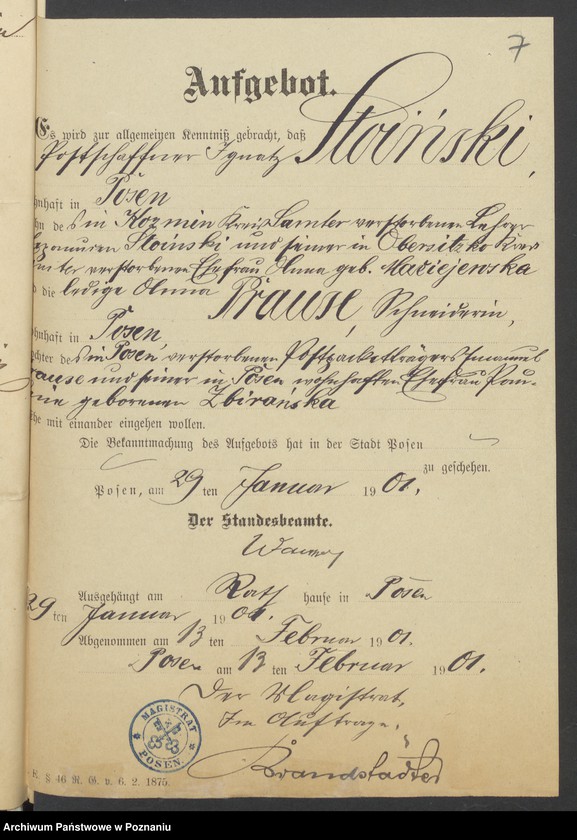 7
Aufgebot.
Es wird zur allgemeinen Kenntniß gebracht, daß
Postschaffner Ignatz Stoiński,
nhaft in Posen
hn des in Kozmin Kreis Samter verstorbenen Lehrer
Stoinski und seiner in Obersitzko Kreis
mter verstorbenen Ehefrau Anna geb. Maciejewska
d die ledige Anna Prause, Schneiderin,
ohnhaft in Posen,
chter des in Posen verstorbenen Postpacketträgers Emanuel
rause und seiner in Posen wohnhaften Ehefrau Pau-
ne geborenen Zbiranska
he mit einander eingehen wollen.
Die Bekanntmachung des Aufgebots hat in der Stadt Posen
zu geschehen.
Posen, am 29 ten Januar 1901.
Der Standesbeamte.
Ausgehängt am Rath hause in Posen
29 ten Januar 1901.
Abgenommen am 13 ten Februar 1901.
Posen am 13 ten Februar 1901.
Der Magistrat,
Im Auftrage.
Brandstädter
MAGISTRAT
POSEN.
E. § 46 R. G. v. 6. 2. 1875.
Archiwum Państwowe w Poznaniu